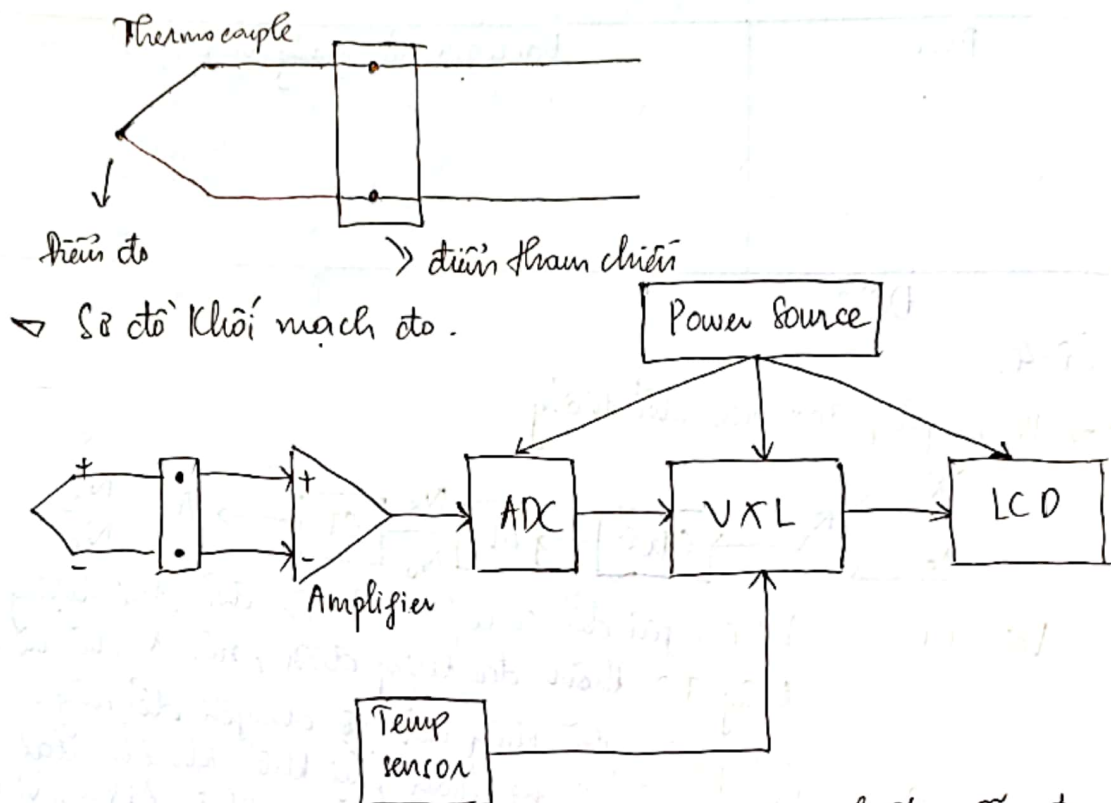 Thermocouple
điểm đo
điểm tham chiếu
Sơ đồ Khối mạch đo.
Power Source
+
-
+
-
ADC
VXL
LCD
Amplifier
Temp
sensor